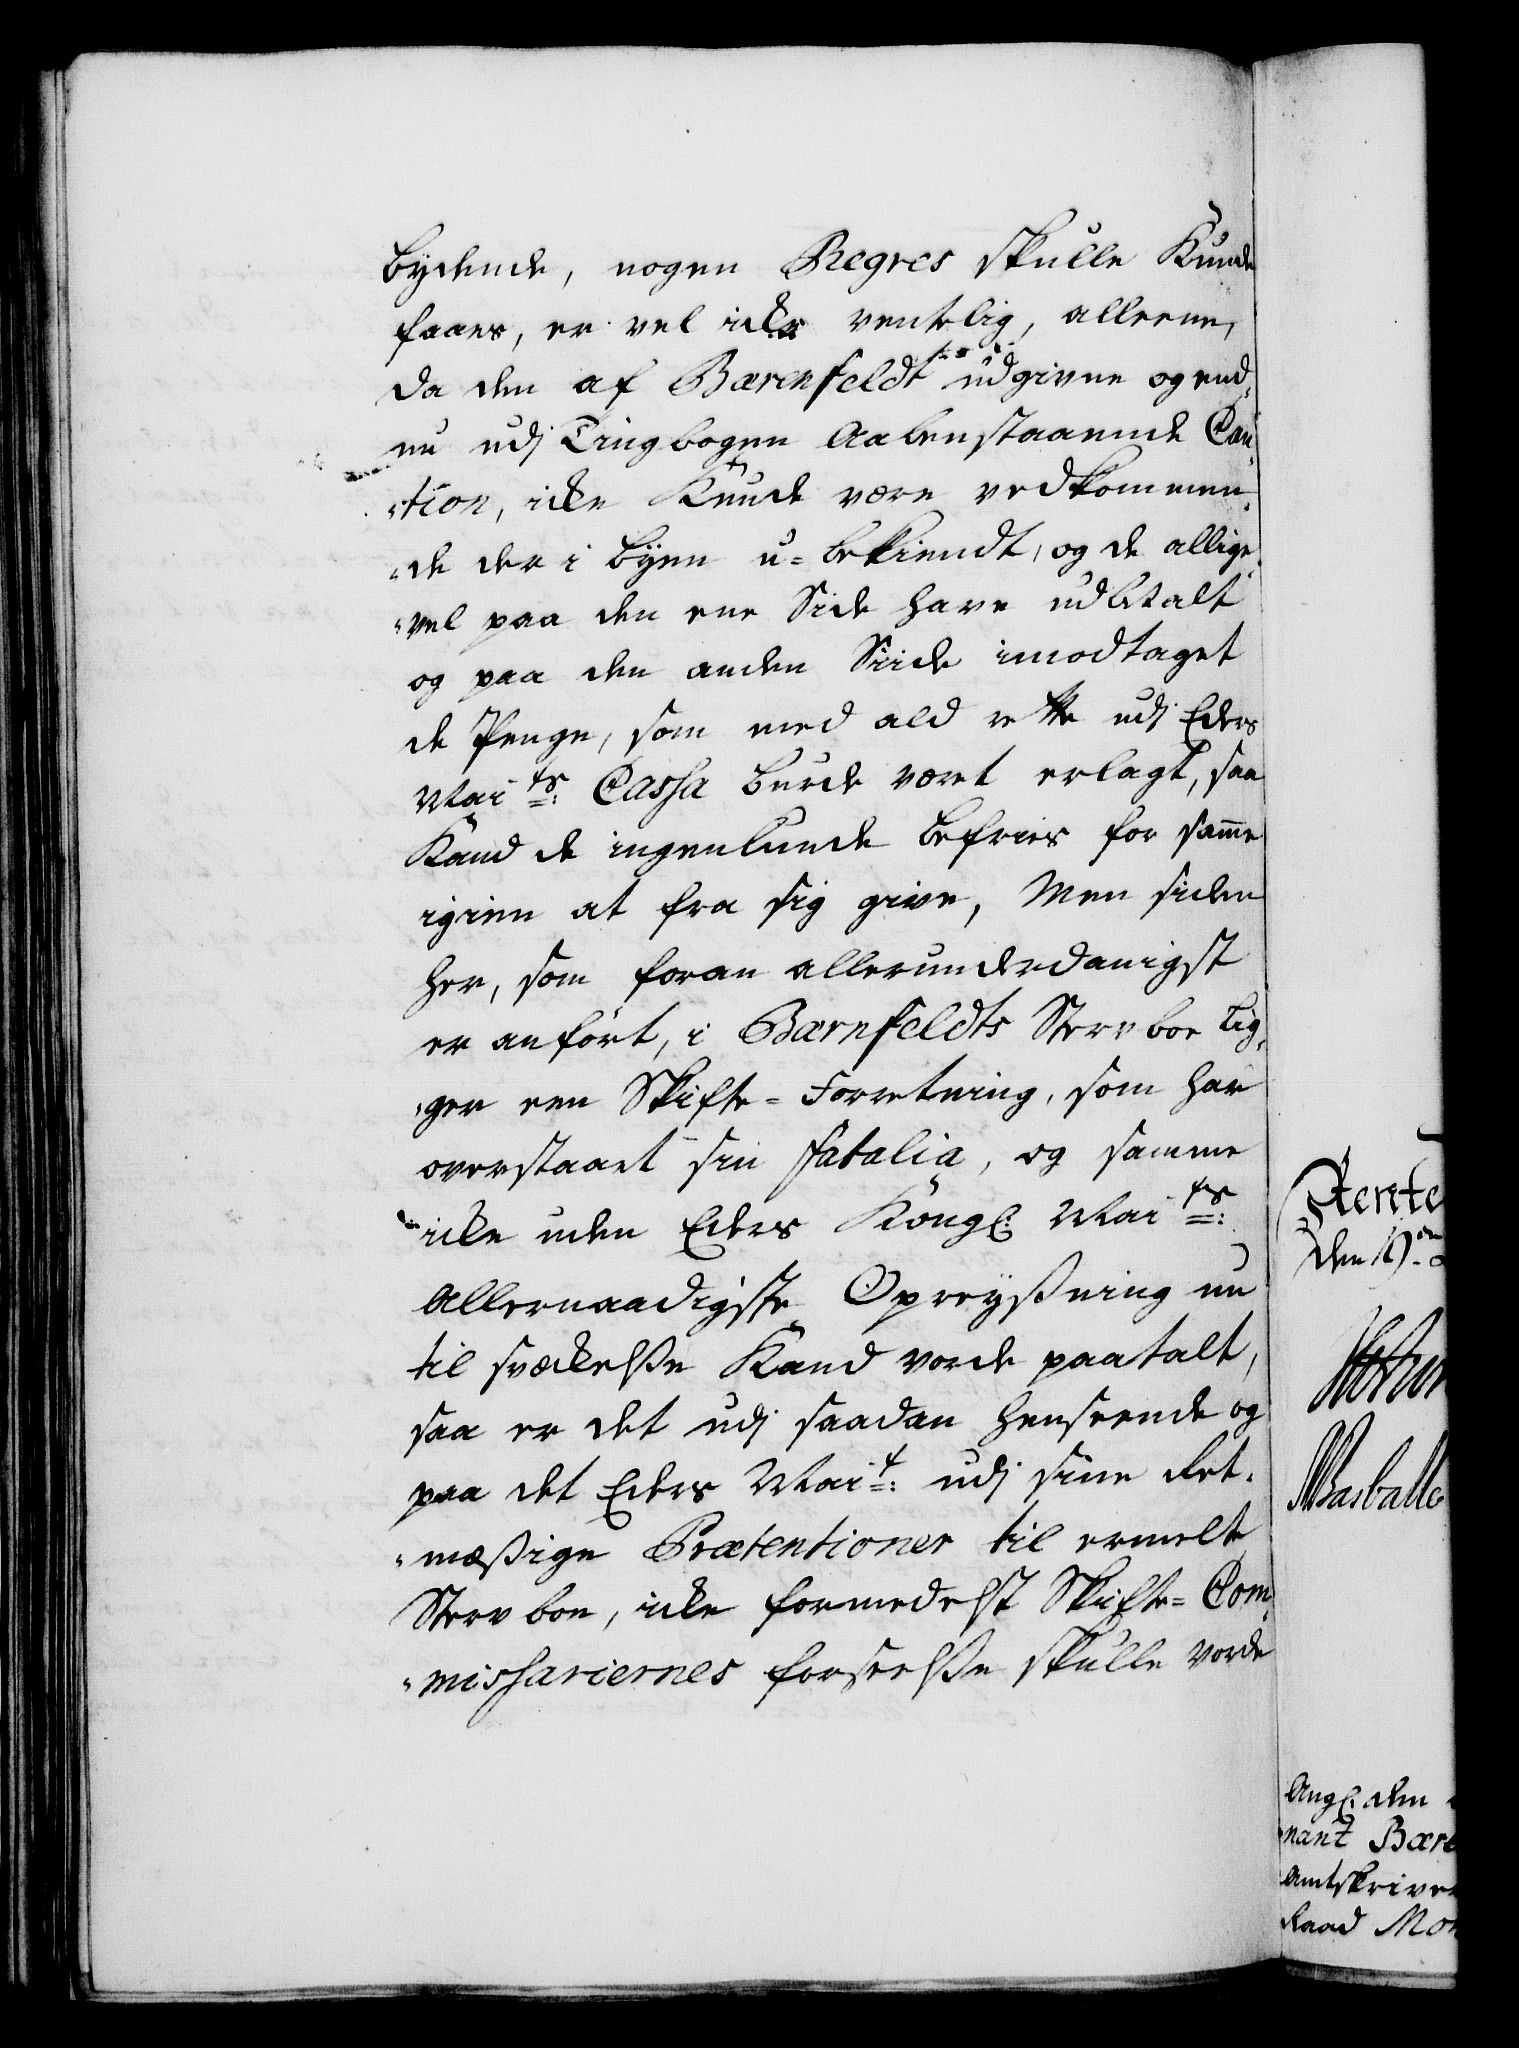 bydende, nogen Regres skulle Kunde
faaes, er vel icke ventelig, alleene,
da den af Bærenfeldt udgivne og end-
nu udj Tingbogen Aabenstaaende Cau-
-tion, icke Kunde være vedkommen-
-de der i Byen u-bekiendt, og de allige-
-vel paa den ene Side have udbetalt
og paa den anden Siide imodtaget
de Penge, som med ald rette udj Eders
Mai ts: Cassa burde været erlagt, saa
Kand de ingenlunde befries for samme
igien at fra sig give, Men siden
her, som foran allerunderdanigst
er anført, i Bærnfeldts Sterv boe lig-
-ger een Skifte-Forretning, som har
overstaaet sin fatalia, og samme
icke uden Eders Kongl: Mai ts:
Allernaadigste Opreyßning nu
til svækelße Kand vorde paatalt,
saa er det udj saadan henseende og
paa det Eders Mai t: udj sine Ret-
-mæßige Prætentioner til ermelte
Sterv boe, icke formedelst Skifte-Com-
-missariernes forseelße skulle vorde
Rente
den 19
Basballe
Angl: den
nant Bær
Amtskrive
Raad Mo